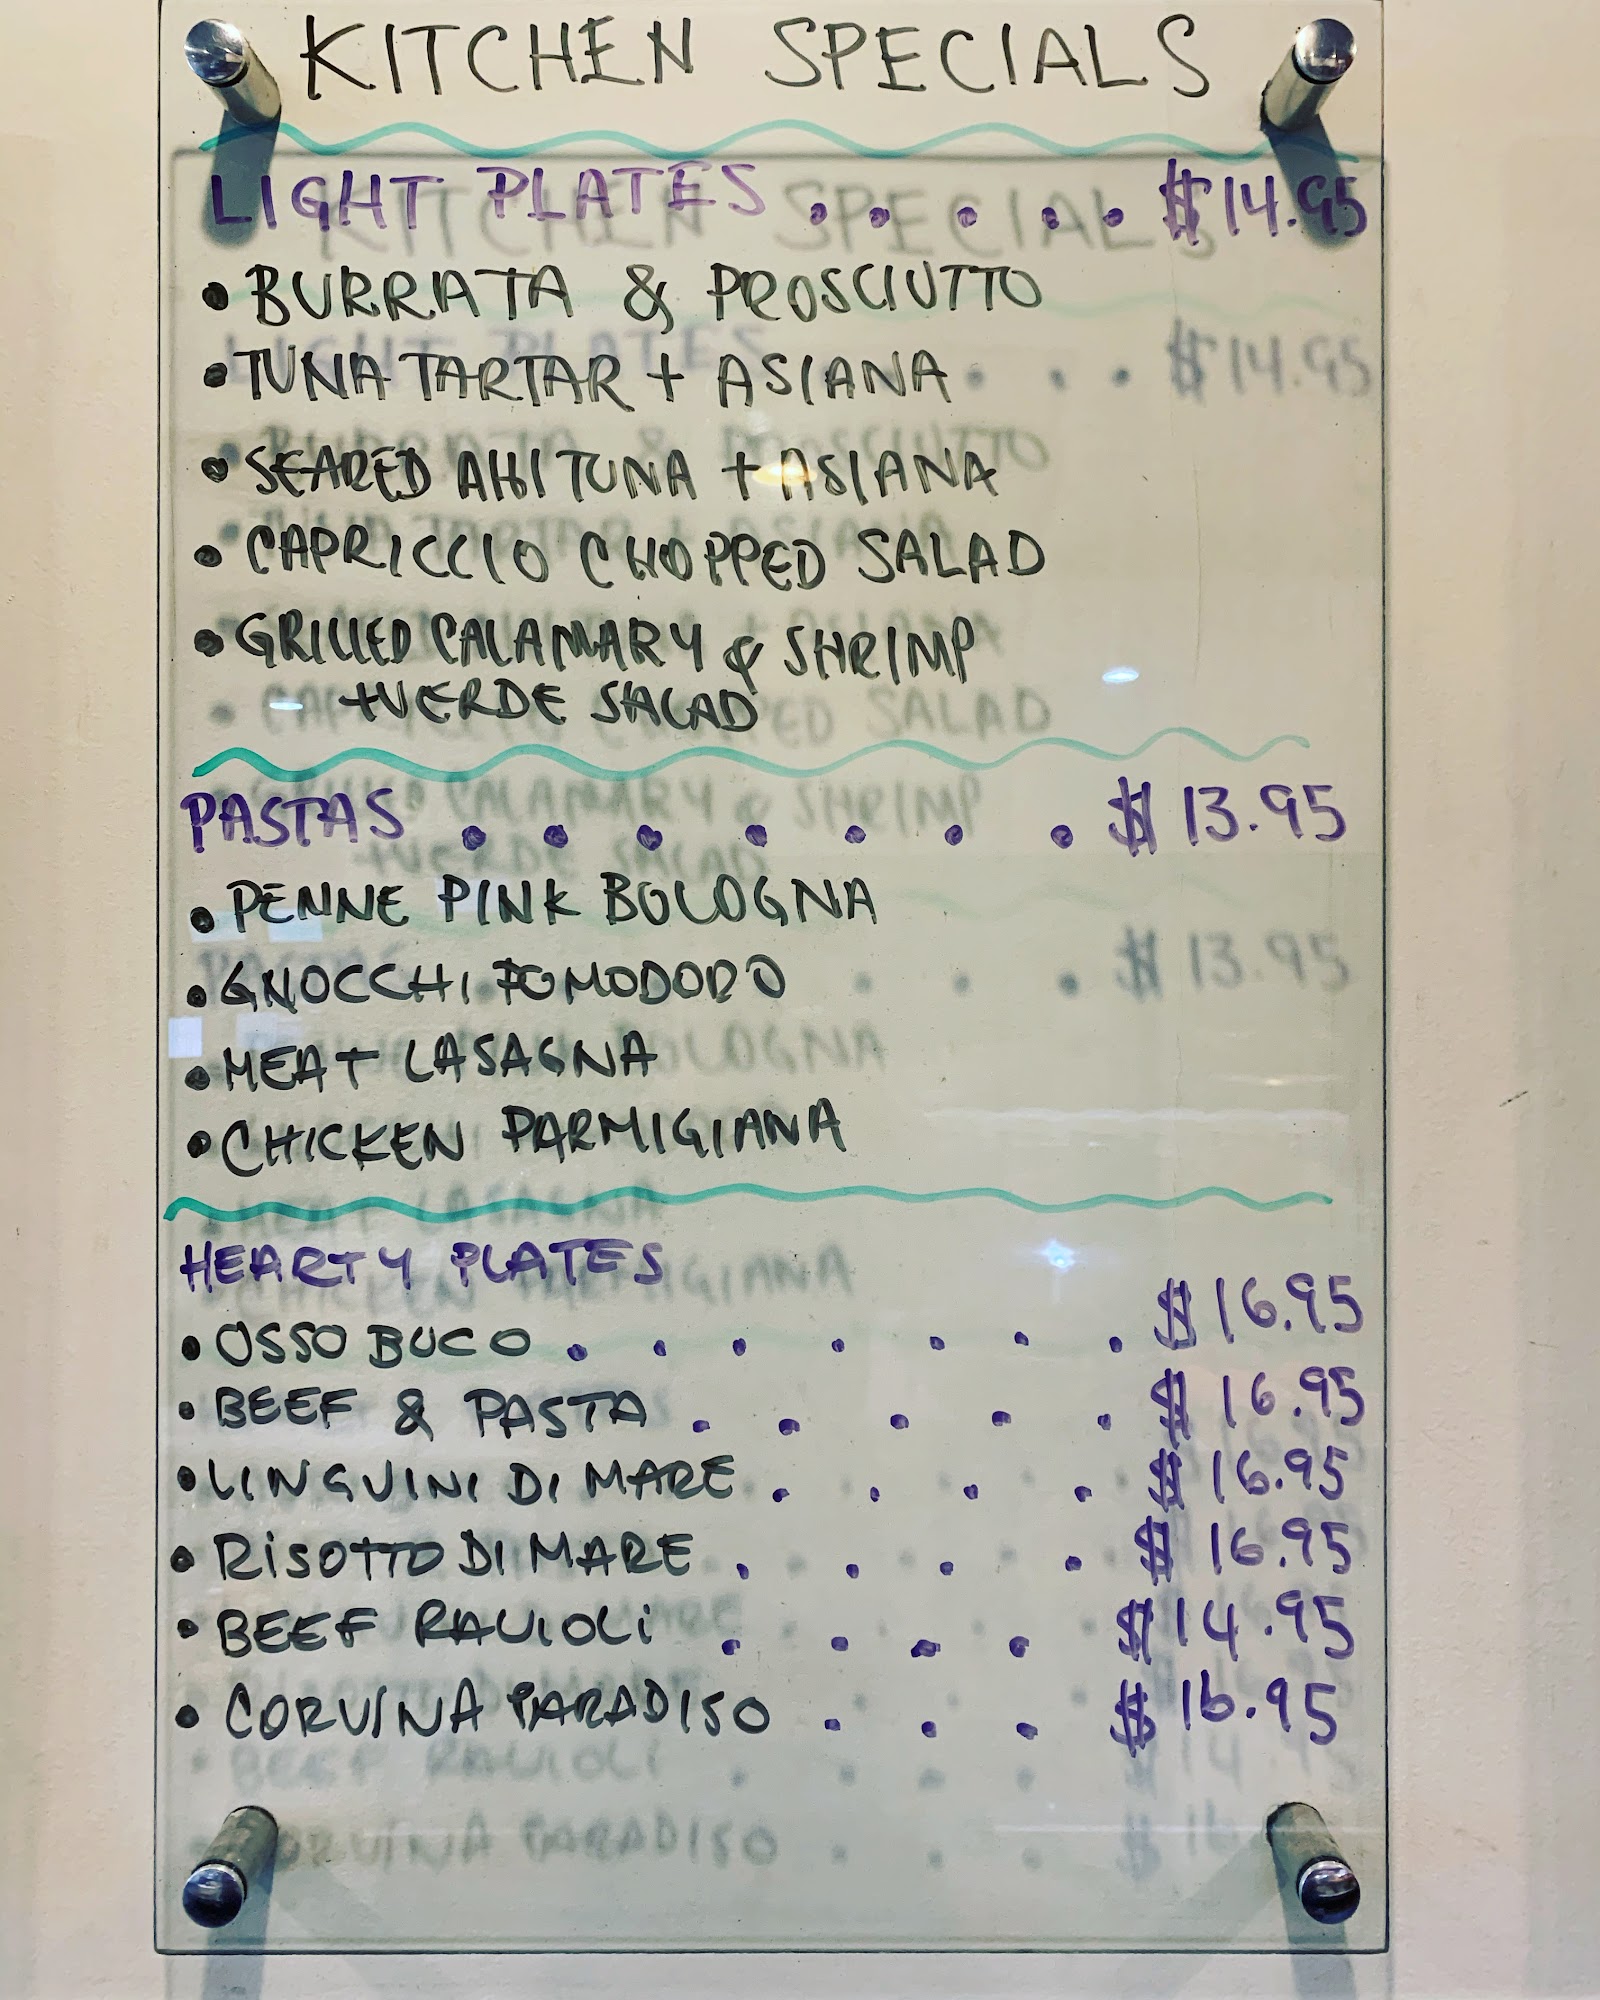 KITCHEN SPECIALS
LIGHT PLATES . . . . . $14.95
• BURRATA & PROSCIUTTO
• TUNA TARTAR + ASIANA
• SEARED AHI TUNA + ASIANA
• CAPRICCIO CHOPPED SALAD
• GRILLED CALAMARY & SHRIMP
+ VERDE SALAD
PASTAS . . . . . . . $13.95
• PENNE PINK BOLOGNA
• GNOCCHI POMODORO
• MEAT LASAGNA
• CHICKEN PARMIGIANA
HEARTY PLATES
• OSSO BUCO . . . . . . $16.95
• BEEF & PASTA . . . . . $16.95
• LINGUINI DI MARE . . . . $16.95
• RISOTTO DI MARE . . . . $16.95
• BEEF RAVIOLI . . . . $14.95
• CORVINA PARADISO . . . $16.95